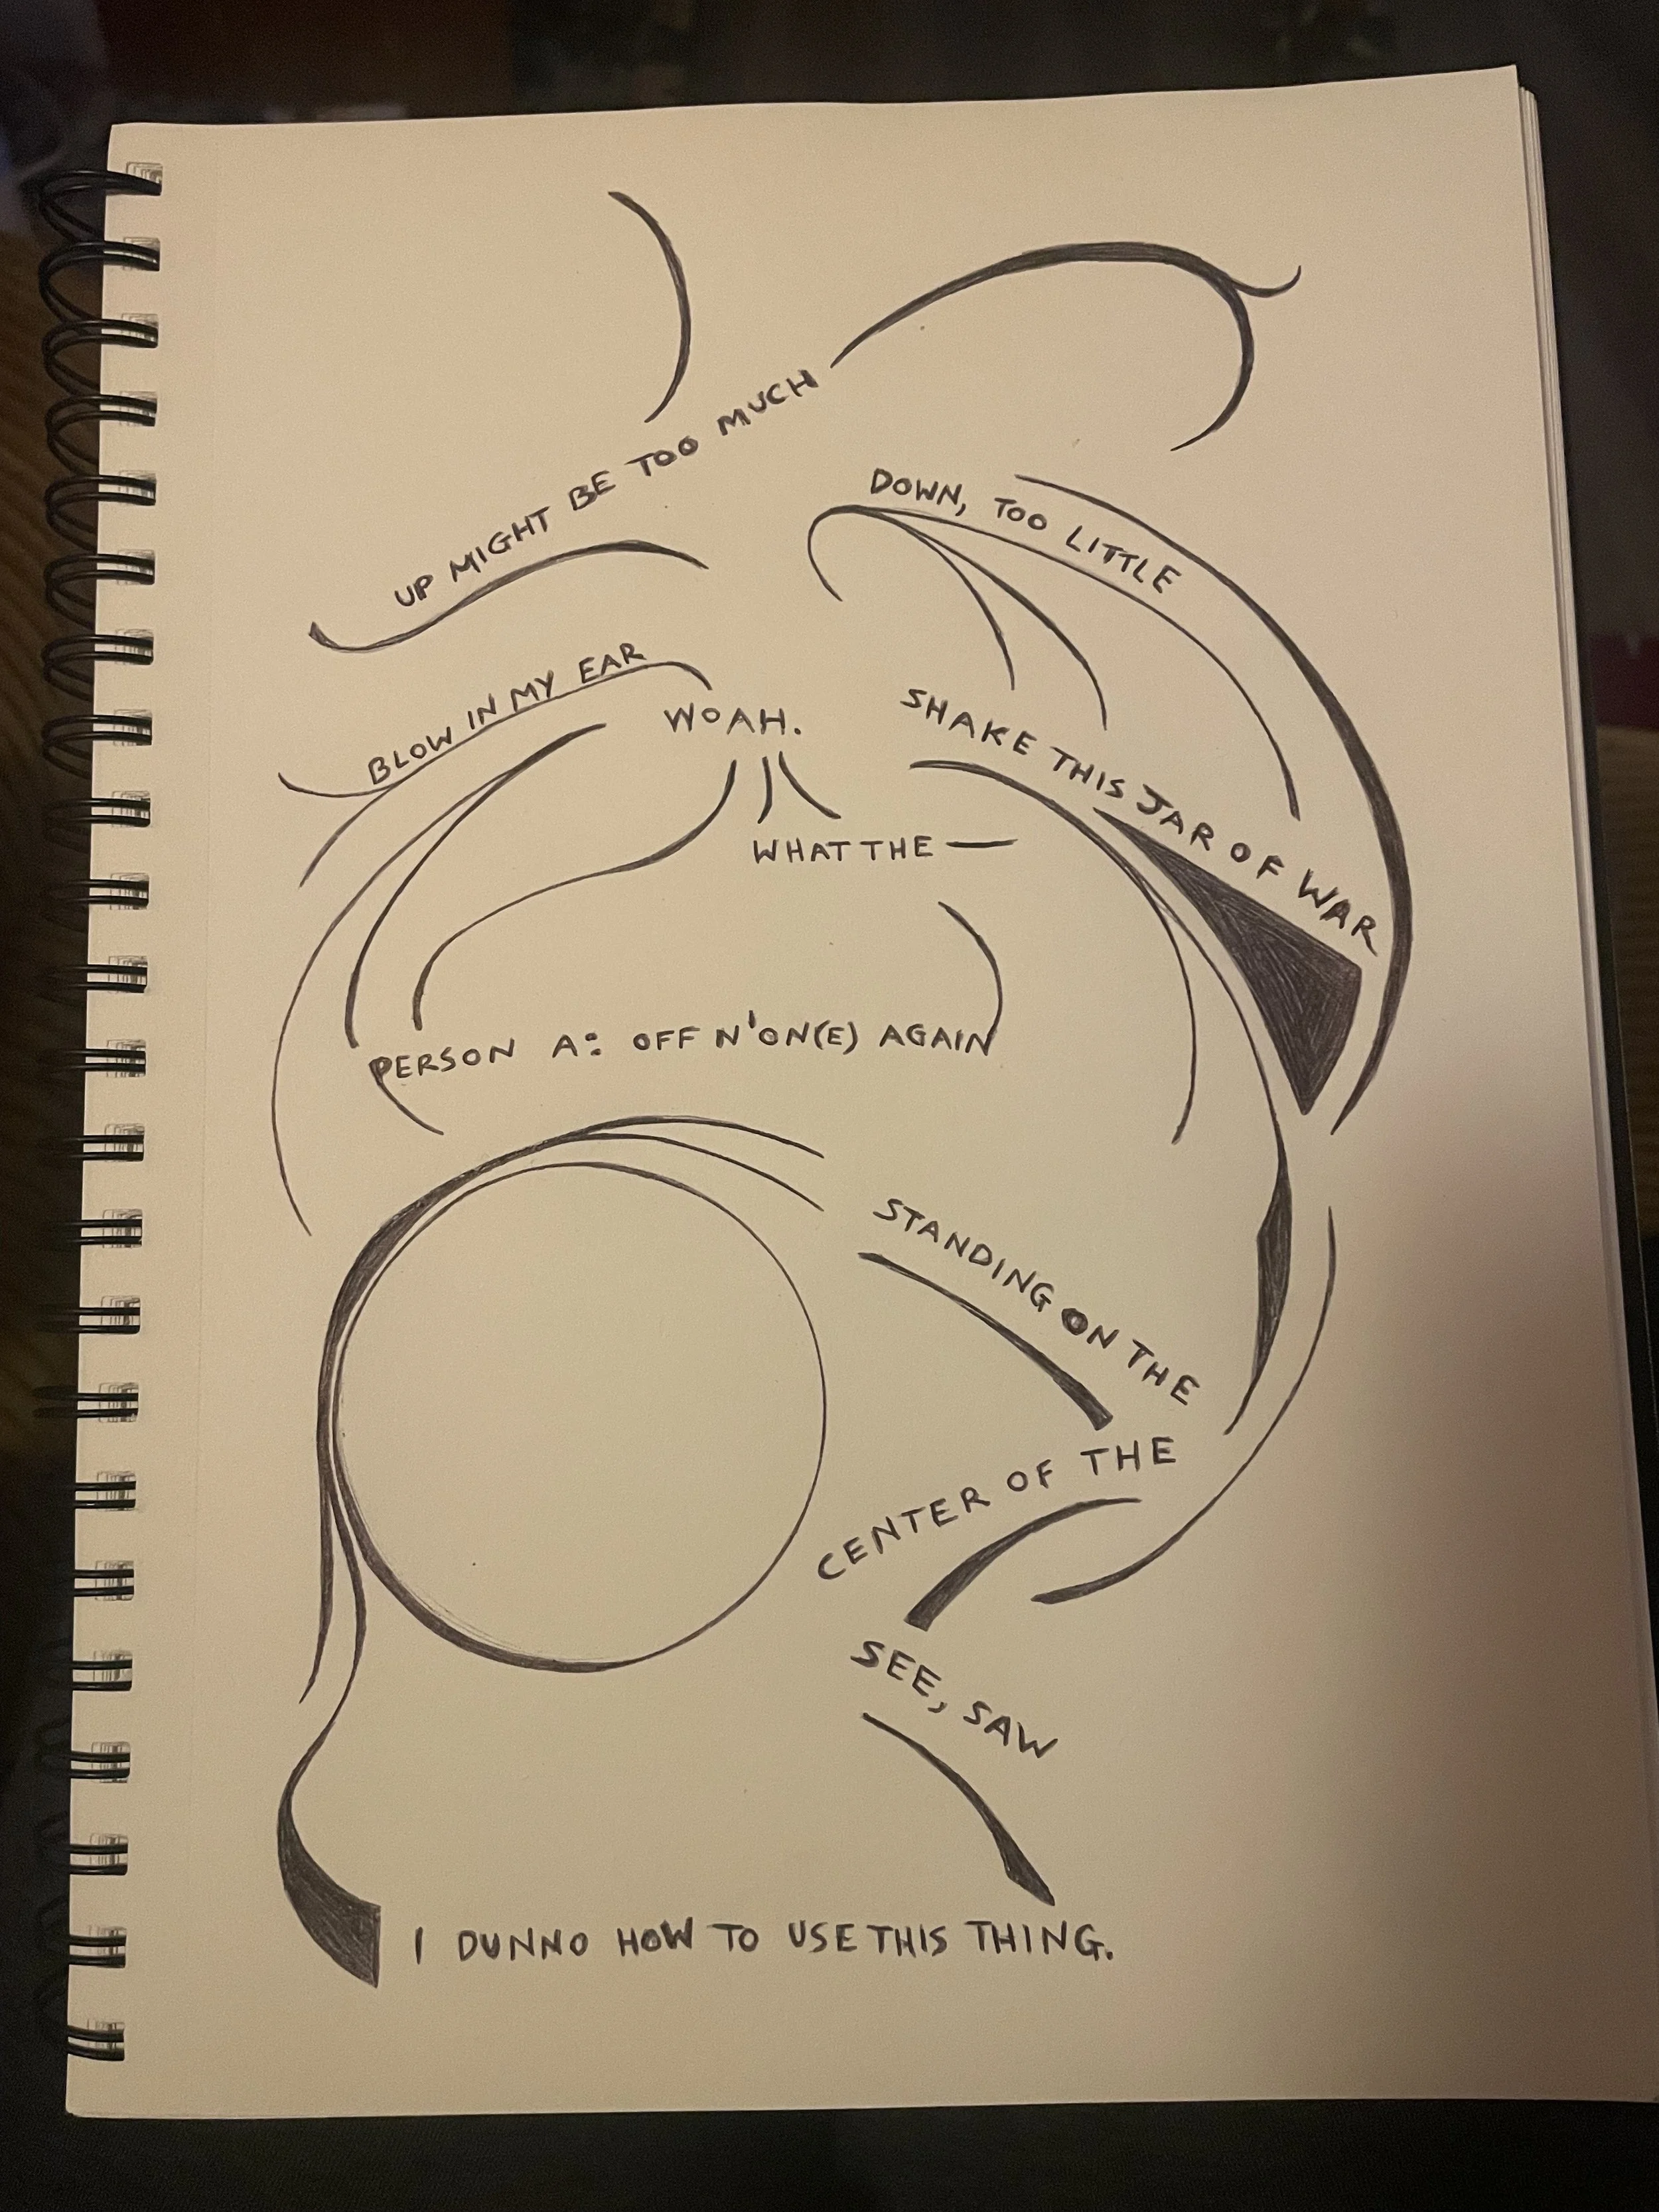 UP MIGHT BE TOO MUCH
DOWN, TOO LITTLE
BLOW IN MY EAR
WOAH.
SHAKE THIS JAR OF WAR
WHAT THE —
PERSON A: OFF N'ON(E) AGAIN
STANDING ON THE
CENTER OF THE
SEE, SAW
I DUNNO HOW TO USE THIS THING.